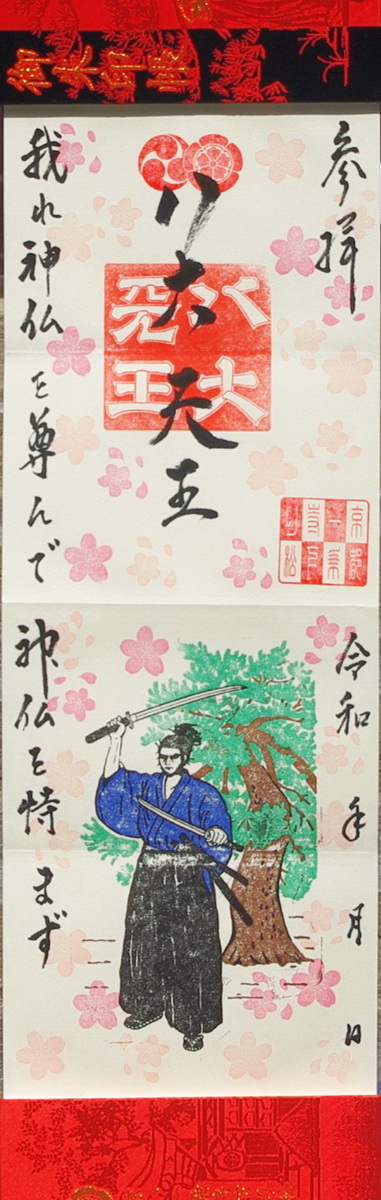 御朱印帳
参拝
八大天王
八大
天王
京都
一乗
寺下
り松
我れ神仏を尊んで
令和 年 月 日
神仏を恃まず